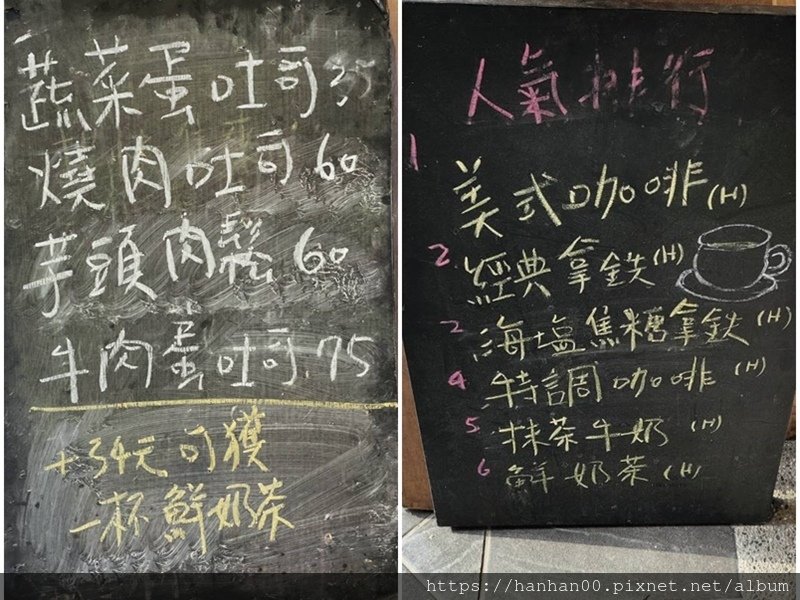 蔬菜蛋吐司 35
燒肉吐司 60
芋頭肉鬆 60
牛肉蛋吐司 75
+34元可獲
一杯鮮奶茶
人氣排行
1 美式咖啡(H)
2. 經典拿鉄(H)
2 海塩焦糖拿鉄(H)
4 特調咖啡(H)
5 抹茶牛奶(H)
6 鮮奶茶(H)
https://hanhan00.pixnet.net/album